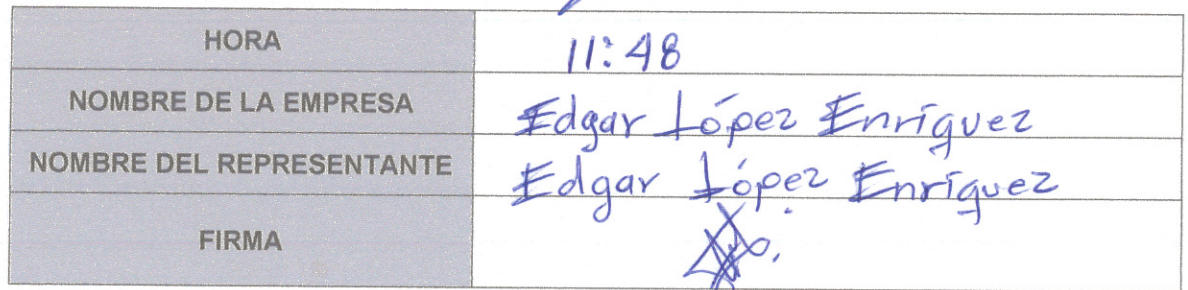 HORA 11:48
NOMBRE DE LA EMPRESA Edgar López Enríquez
NOMBRE DEL REPRESENTANTE Edgar López Enríquez
FIRMA